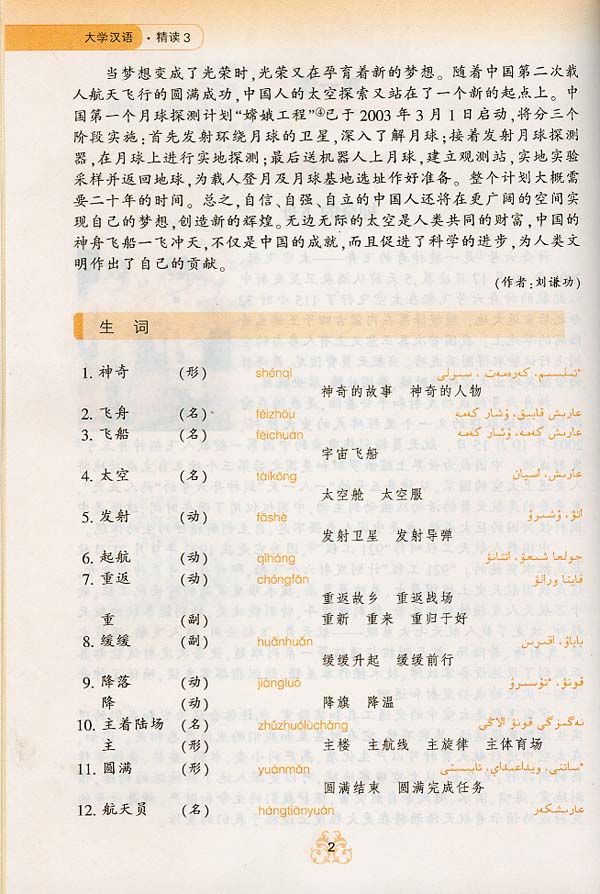 大学汉语 · 精读 3
当梦想变成了光荣时,光荣又在孕育着新的梦想。随着中国第二次载
人航天飞行的圆满成功,中国人的太空探索又站在了一个新的起点上。中
国第一个月球探测计划“嫦娥工程”④已于 2003 年 3 月 1 日启动,将分三个
阶段实施:首先发射环绕月球的卫星,深入了解月球;接着发射月球探测
器,在月球上进行实地探测;最后送机器人上月球,建立观测站,实地实验
采样并返回地球,为载人登月及月球基地选址作好准备。整个计划大概需
要二十年的时间。总之,自信、自强、自立的中国人还将在更广阔的空间实
现自己的梦想,创造新的辉煌。无边无际的太空是人类共同的财富,中国的
神舟飞船一飞冲天,不仅是中国的成就,而且促进了科学的进步,为人类文
明作出了自己的贡献。
(作者:刘谦功)
生 词
1. 神奇 (形) shénqí ٴتىلسىم، كەرەمەت، سىرلى
神奇的故事 神奇的人物
2. 飞舟 (名) fēizhōu عارىش قايىق، ۇشار كەمە
3. 飞船 (名) fēichuán عارىش كەمە، ۇشار كەمە
宇宙飞船
4. 太空 (名) tàikōng عارىش، اسپان
太空舱 太空服
5. 发射 (动) fāshè اتۋ، ۇشىرۋ
发射卫星 发射导弹
6. 起航 (动) qǐháng جولعا شىعۋ، اتتانۋ
7. 重返 (动) chóngfǎn قايتا ورالۋ
重返故乡 重返战场
重 (副) 重新 重来 重归于好
8. 缓缓 (副) huǎnhuǎn باياۋ، اقىرىن
缓缓升起 缓缓前行
9. 降落 (动) jiàngluò قونۋ، ٴتۇسىرۋ
降 (动) 降旗 降温
10. 主着陆场 (名) zhǔzhuólùchǎng نەگىزگى قونۋ الاڭى
主 (形) 主楼 主航线 主旋律 主体育场
11. 圆满 (形) yuánmǎn ٴساتتى، ويداعىداي، تابىستى
圆满结束 圆满完成任务
12. 航天员 (名) hángtiānyuán عارىشكەر
2